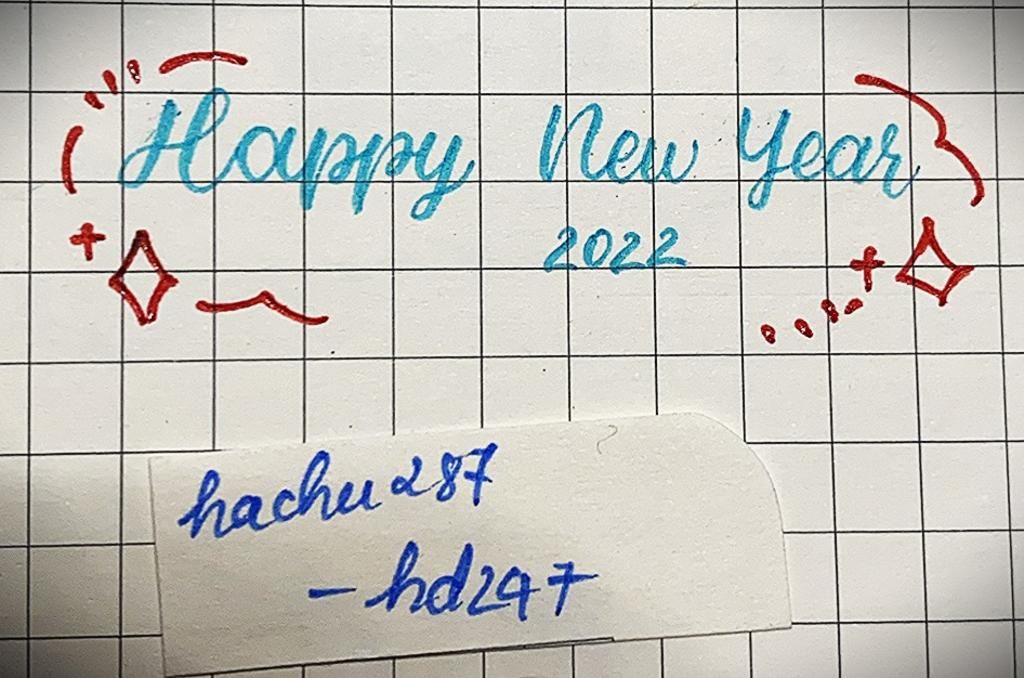 Happy New Year
2022
hachu287
-hd247